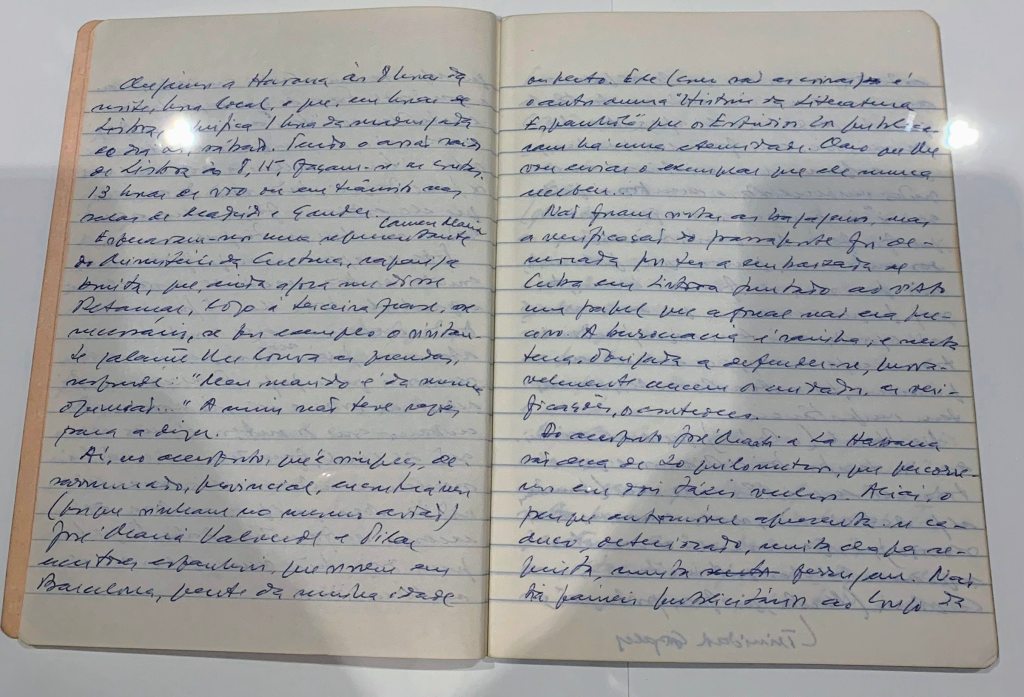 Chegámos a Havana às 8 horas da
noite, hora local, o que, em horas de
Lisboa, significa 1 hora da madrugada
do dia sábado. Tendo o avião saído
de Lisboa às 8,15, façam-se as contas.
13 horas de voo ou em trânsito nas
salas de Madrid e Gander.
Carmen Maria
Esperavam-nos uma representante
do Ministério da Cultura, rapariga
bonita, que, ainda agora me disse
Retamar, logo à terceira frase, se
necessário, se por exemplo o visitan-
te galante lhe louva as prendas,
responde: "Meu marido é da mesma
opinião..." A mim não teve razões
para a dizer.
Aí, no aeroporto, que é simples, de-
sarrumado, provincial, encontrámos
(porque vinham no mesmo avião)
José María Valverde e Pilar
escritores espanhóis, que vivem em
Barcelona, gente da minha idade
ou perto. Ele (como são as coisas) é
o autor numa "História da Literatura
Espanhola" que os Estúdios Cor publica-
ram há uma eternidade. Claro que lhe
vou enviar o exemplar que ele nunca
recebeu.
Não foram vistas as bagagens, mas
a verificação do passaporte foi de-
morada por ter a embaixada de
Cuba em Lisboa juntado ao visto
um papel que afinal não era pre-
ciso. A burocracia é rainha, e nesta
terra, obrigada a defender-se,
velmente crescem os cuidados, as veri-
ficações, os controles.
Do aeroporto José Martí a La Habana
são cerca de 20 quilómetros, que percorre-
mos em dois táxis velhos. Aliás, o
parque automóvel apresenta-se ca-
duco, deteriorado, muita chapa re-
muita ferrugem. Não
há painéis publicitários ao longo da